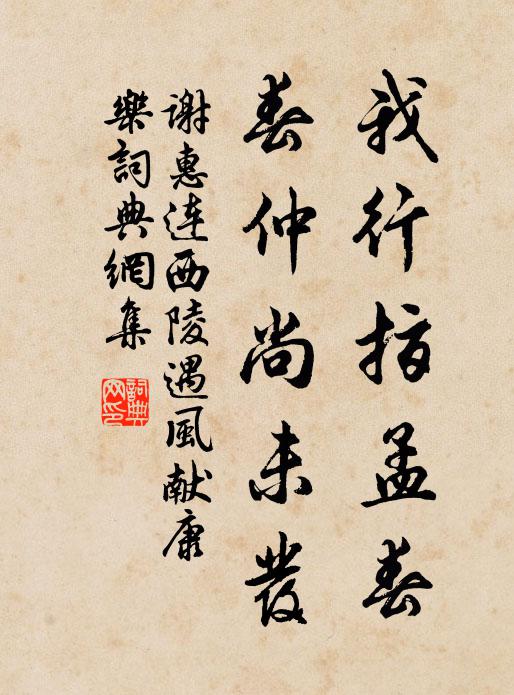 我行指孟春
春仲尚未發
谢惠连西陵遇風献康
樂詞典網集
詞典網印